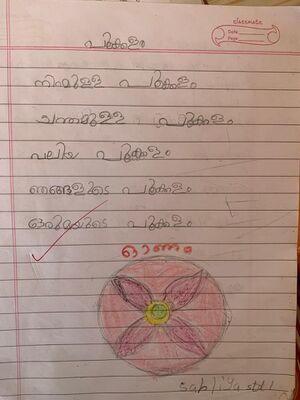 classmate
Date
Page
പൂക്കളം
നിറമുള്ള പൂക്കളം
ചന്തമുള്ള പൂക്കളം
വലിയ പൂക്കളം
ഞങ്ങളുടെ പൂക്കളം
ഒരുമയുടെ പൂക്കളം
ഓണം